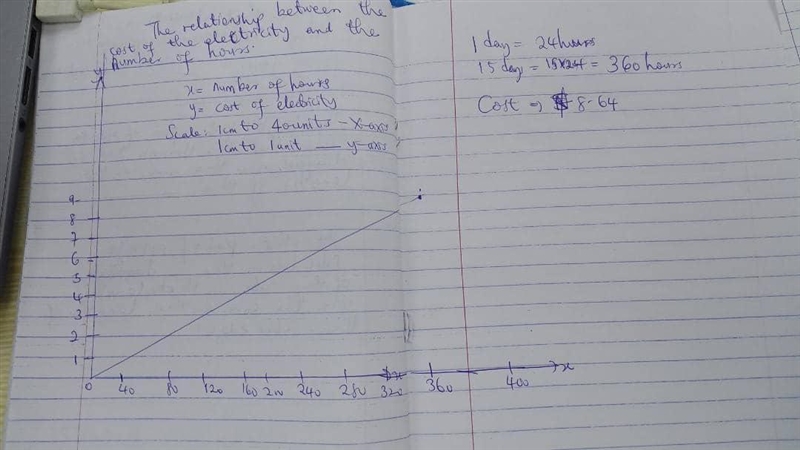 The relationship between the
cost of the electricity and the
number of hours.
y
x= number of hours
y= cost of electricity
Scale: 1cm to 40units - X-axis
1cm to 1unit — y-axis
9
8
7
6
5
4
3
2
1
0 40 80 120 160 200 240 280 320 360 400 x
1 day = 24hours
15 day = 15x24 = 360 hours
Cost => $ 8.64